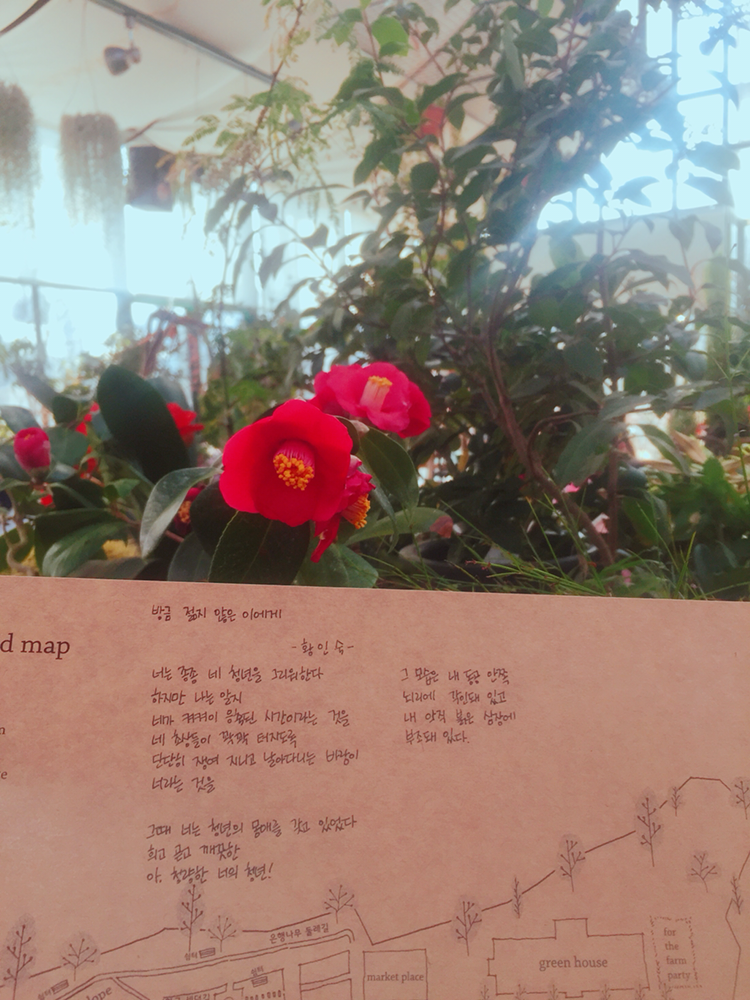 d map
방금 젊지 않은 이에게
-황인숙-
너는 종종 네 청년을 그리워한다
하지만 나는 알지
네가 켜켜이 응축된 시간이라는 것을
네 초상들이 꽉꽉 터지도록
단단히 쟁여 지니고 날아다니는 바람이
너라는 것을
그때 너는 청년의 몸매를 갖고 있었다
희고 곧고 깨끗한
아, 청량한 너의 청년!
그 모습은 내 동공 안쪽
뇌리에 각인돼 있고
내 아직 붉은 심장에
부조돼 있다.
은행나무 둘레길
쉼터
쉼터
쉼터
lope
market place
green house
for
the
farm
party